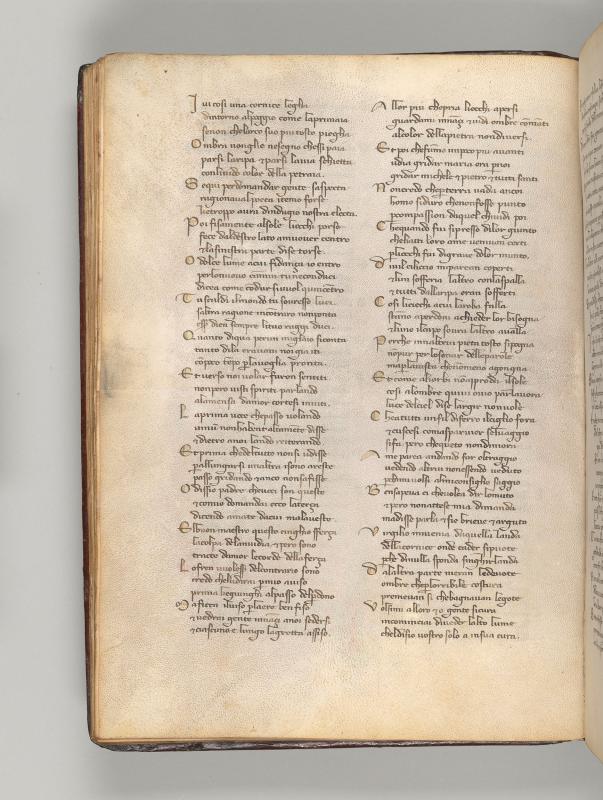 I vi cosi una cornice legha
dintorno alpoggio come laprimaia
senon chelarco suo piu tosto piegha
O mbra nonglie nesegno chessi paia
parsi laripa & parsi lavia schietta
collivido color della petraia
S e qui perdomandar gente saspecta
ragionaval poeta i temo forse
chetroppo avra dindugio nostra electa
P oi fisamente alsole liocchi porse
fece daldestro lato amuover centro
& lasinistra parte dise torse
O dolce lume acui fidanza io entro
perlonuovo camin tu neconduci
dicea come condur sivuol quincentro
T u scaldi ilmondo tu souresso luci
saltra ragione incontraro nonponta
esser dien sempre lituo raggi duci
Q uanto diqua perun miglaio siconta
tanto dila eravam noi gia iti
con poco tempo per lavoglia pronta
E t verso noi volar furon sentiti
nonpero visti spiriti parlando
alamensa damor cortesi inviti
L aprima voce chepasso volando
vinum nonhabent altamente disse
& dietro anoi lando reiterando
E t prima chedeltutto nonsi udisse
perallungarsi unaltra isono oreste
passo gridando & anco nonsafisse
O dissio padre chevoci son queste
& comio domandai ecco laterza
dicendo amate dacui malaveste
E lbuon maestro questo cinghio sferza
lacolpa delanvidia & pero sono
tracte damor lecorde dellaferza
L ofren vuolessi delcontrario sono
credo cheludirai pmio aviso
prima chegiunghi alpasso delpdono
M a ficca ilviso per laere ben fiso
& vedrai gente innanzi anoi sedersi
& ciascuno e lungo lagrotta assiso
A llor piu chepria liocchi apersi
guardami innanzi & vidi ombre conmanti
alcolor dellapietra nondiversi
E t poi chefumo unpoco piu avanti
udia gridar maria ora per noi
gridar michele & pietro & tutti santi
N oncredo cheperterra vada ancoi
homo siduro chenonfosse punto
pcompassion diquel chevidi poi
C hequando fui sipresso dilor giunto
chelatti loro ame venivan certi
perliocchi fui digrave dolor munto
D i vil cilicio miparean coperti
& lun sofferia laltro conlaspalla
& tutti dallaripa eran sofferti
C osi liciechi acui laroba falla
stanno aperdoni achieder lor bisogna
& luno ilcapo soura laltro avalla
P erche innaltrui pieta tosto sipogna
nonpur perlosonar delleparole
ma perlavista chenonmeno agogna
E t come aliorbi nonapproda ilsole
cosi alombre quivi onio parlavora
luce delciel dise largir nonvole
C heatutti unfil diferro ilciglio fora
& cuscesi comasparvier selvaggio
sifa pero chequeto nondimora
A me parea andando far oltraggio
vedendo altrui nonessendo veduto
perchimi volsi almioconsiglio saggio
B ensapeva ei chevolea dir lomuto
& pero nonattese mia dimanda
madisse parla & sie brieve & arguto
V irgilio mivenia daquella banda
dellacornice onde cader sipuote
pche danulla sponda singhirlanda
D alaltra parte meran ledevote
ombre cheplorribile costura
premevan si chebagnavan legote
V olsimi alloro & o gente sicura
incominciai diveder lalto lume
cheldisio vostro solo a insua cura.